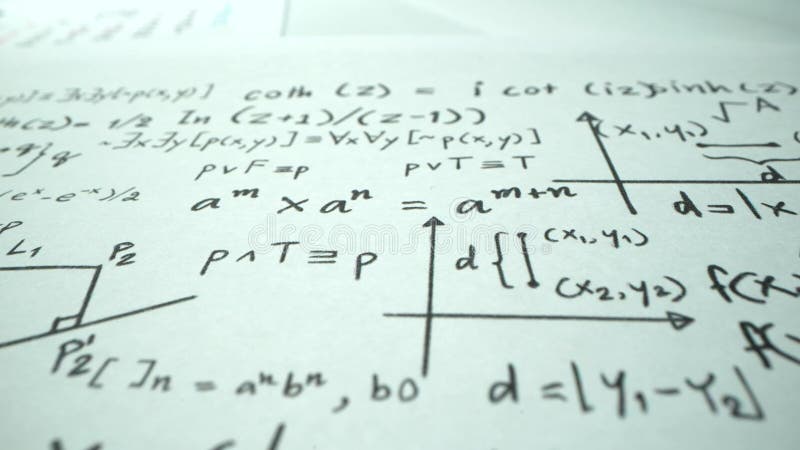 ≡ ∃x∃y[~p(x,y)] coth (z) = i cot (iz) sinh(z)
h(z) = 1/2 In (z+1)/(z-1))
√A
~∃x∃y[p(x,y)] ≡ ∀x∀y[~p(x,y)]
(x₁,y₁)
}q
p∨F≡p p∨T≡T
d
(eˣ-e⁻ˣ)/2
aᵐ × aⁿ = aᵐ⁺ⁿ
d=|x
L₁ P₂
p∧T≡p
d{ (x₁,y₁)
(x₂,y₂)
f(x
f(
P₂'
[ ]n = aⁿbⁿ, b0
d=|Y₁-Y₂|